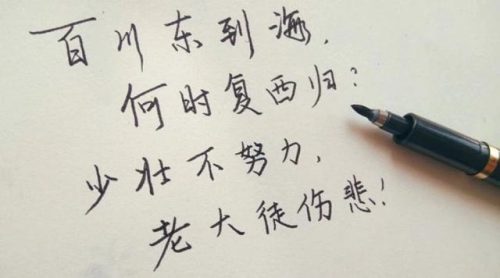 百川东到海,
何时复西归?
少壮不努力,
老大徒伤悲!